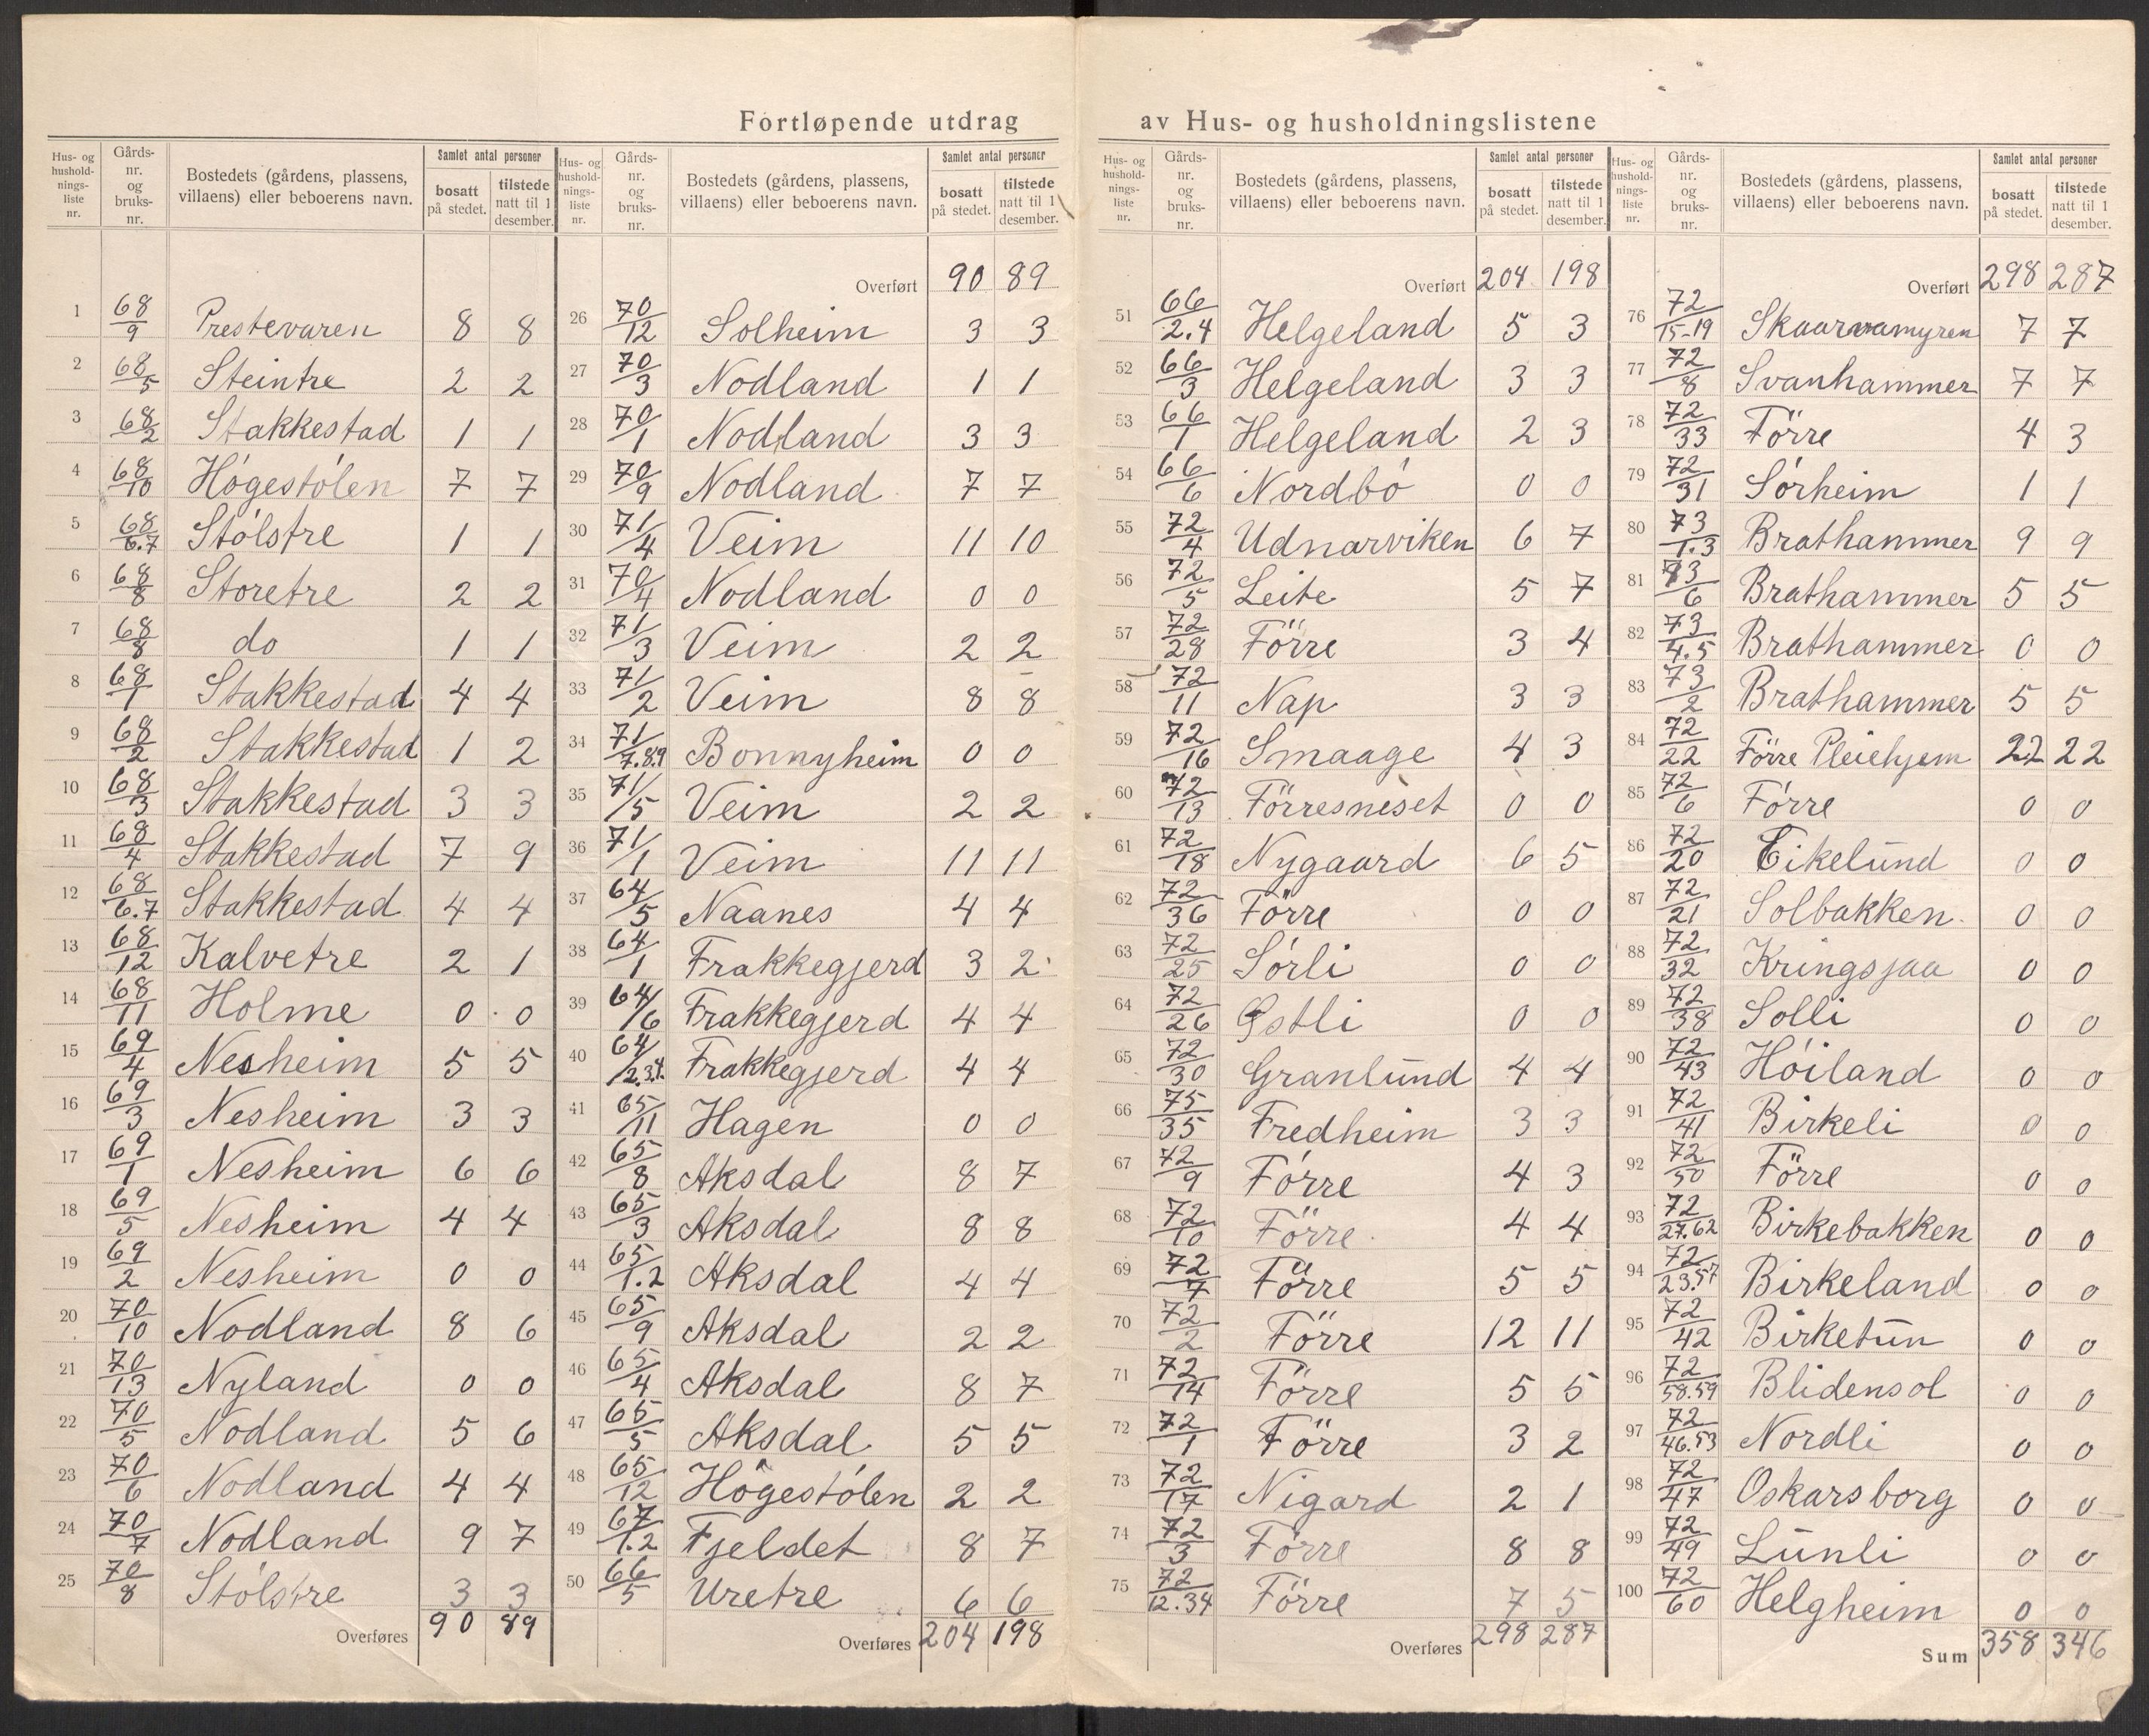 Fortløpende utdrag av Hus- og husholdningslistene
Hus- og husholdnings-liste nr. Gårds-nr. og bruks-nr. Bostedets (gårdens, plassens, villaens) eller beboerens navn. Samlet antal personer bosatt på stedet. tilstede natt til 1 desember.
1 68/9 Prestevaren 8 8
2 68/5 Steintre 2 2
3 68/2 Stakkestad 1 1
4 68/10 Högestölen 7 7
5 68/6.7 Stólstre 1 1
6 68/8 Storetre 2 2
7 68/8 do 1 1
8 68/1 Stakkestad 4 4
9 68/2 Stakkestad 1 2
10 68/3 Stakkestad 3 3
11 68/4 Stakkestad 7 9
12 68/6.7 Stakkestad 4 4
13 68/12 Kalvetre 2 1
14 68/11 Holme 0 0
15 69/4 Nesheim 5 5
16 69/3 Nesheim 3 3
17 69/1 Nesheim 6 6
18 69/5 Nesheim 4 4
19 69/2 Nesheim 0 0
20 70/10 Nodland 8 6
21 70/13 Nyland 0 0
22 70/5 Nodland 5 6
23 70/6 Nodland 4 4
24 70/7 Nodland 9 7
25 70/8 Stólstre 3 3
Overføres 90 89
Hus- og husholdnings-liste nr. Gårds-nr. og bruks-nr. Bostedets (gårdens, plassens, villaens) eller beboerens navn. Samlet antal personer bosatt på stedet. tilstede natt til 1 desember.
Overført 90 89
26 70/12 Solheim 3 3
27 70/3 Nodland 1 1
28 70/1 Nodland 3 3
29 70/9 Nodland 7 7
30 71/4 Veim 11 10
31 70/4 Nodland 0 0
32 71/3 Veim 2 2
33 71/2 Veim 8 8
34 71/7.8.9 Bonnyheim 0 0
35 71/5 Veim 2 2
36 71/1 Veim 11 11
37 64/5 Naanes 4 4
38 64/1 Frakkegjerd 3 2
39 64/6 Frakkegjerd 4 4
40 64/2.3.4. Frakkegjerd 4 4
41 65/11 Hagen 0 0
42 65/8 Aksdal 8 7
43 65/3 Aksdal 8 8
44 65/1.2 Aksdal 4 4
45 65/9 Aksdal 2 2
46 65/4 Aksdal 8 7
47 65/5 Aksdal 5 5
48 65/12 Högestólen 2 2
49 67/1.2 Fjeldet 8 7
50 66/5 Uretre 6 6
Overføres 204 198
Hus- og husholdnings-liste nr. Gårds-nr. og bruks-nr. Bostedets (gårdens, plassens, villaens) eller beboerens navn. Samlet antal personer bosatt på stedet. tilstede natt til 1 desember.
Overført 204 198
51 66/2.4 Helgeland 5 3
52 66/3 Helgeland 3 3
53 66/1 Helgeland 2 3
54 66/6 Nordbó 0 0
55 72/4 Udnarviken 6 7
56 72/5 Leite 5 7
57 72/28 Förre 3 4
58 72/11 Nap 3 3
59 72/16 Smaage 4 3
60 72/13 Förresneset 0 0
61 72/18 Nygaard 6 5
62 72/36 Förre 0 0
63 72/25 Sórli 0 0
64 72/26 Østli 0 0
65 72/30 Granlund 4 4
66 75/35 Fredheim 3 3
67 72/9 Fórre 4 3
68 72/10 Förre 4 4
69 72/7 Förre 5 5
70 72/2 Förre 12 11
71 72/14 Förre 5 5
72 72/1 Förre 3 2
73 72/17 Nigard 2 1
74 72/3 Förre 8 8
75 72/12.34 Förre 7 5
Overføres 298 287
Hus- og husholdnings-liste nr. Gårds-nr. og bruks-nr. Bostedets (gårdens, plassens, villaens) eller beboerens navn. Samlet antal personer bosatt på stedet. tilstede natt til 1 desember.
Overført 298 287
76 72/15-19 Skaarvamyren 7 7
77 72/8 Svanhammer 7 7
78 72/33 Förre 4 3
79 72/31 Sórheim 1 1
80 73/1.3 Brathammer 9 9
81 73/6 Brathammer 5 5
82 73/4.5 Brathammer 0 0
83 73/2 Brathammer 5 5
84 72/22 Förre Pleiehjem 22 22
85 72/6 Fórre 0 0
86 72/20 Eikelund 0 0
87 72/21 Solbakken 0 0
88 72/32 Kringsjaa 0 0
89 72/38 Solli 0 0
90 72/43 Hóiland 0 0
91 72/41 Birkeli 0 0
92 72/50 Förre 0 0
93 72/27.62 Birkebakken 0 0
94 72/23.57 Birkeland 0 0
95 72/42 Birketun 0 0
96 72/58.59 Blidensol 0 0
97 72/46.53 Nordli 0 0
98 72/47 Oskarsborg 0 0
99 72/49 Lunli 0 0
100 72/60 Helgheim 0 0
Sum 358 346